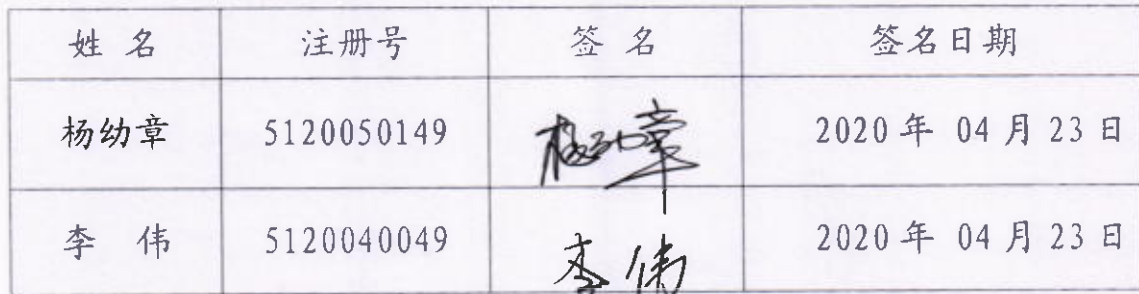 姓 名 注册号 签 名 签名日期
杨幼章 5120050149 杨幼章 2020 年 04 月 23 日
李 伟 5120040049 李伟 2020 年 04 月 23 日